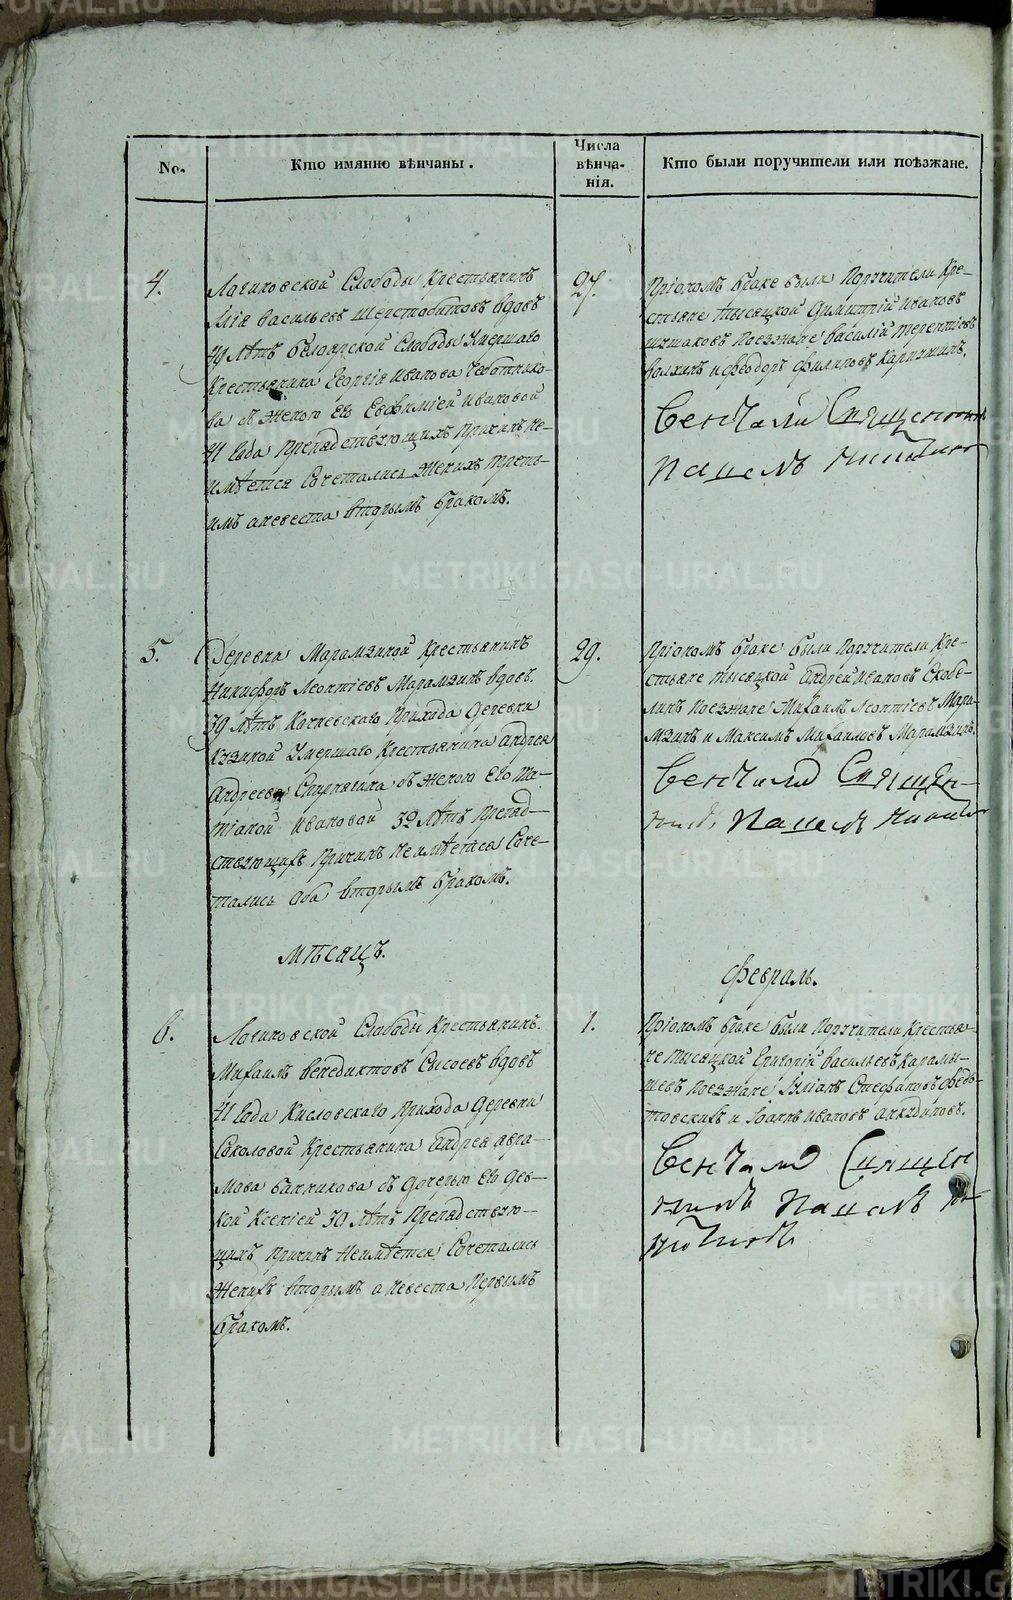 No.
Кто имянно вѣнчаны.
Числа
вѣнча-
нія.
Кто были поручители или поѣзжане.
4.
Логиновской Слободы Крестьянинъ
Илія Васильевъ Шерстобитовъ вдовъ
49 лѣтъ Белоярской Слободы Умершаго
Крестьянина Георгія Иванова Чеботнико-
ва съ Женою Его Евѳимией Ивановой
41 Года Препядствующихъ Причинъ Не-
имѣется Сочетались Женихъ Треть-
имъ а невеста Вторымъ бракомъ.
27.
При ономъ браке были Поручители Кре-
стьяне Тысяцкой Димитрій Ивановъ
Поезжане Василий Терентьевъ
и Феодоръ Филиповъ
Венчалъ Священникъ
Павелъ
5.
Деревни Марамзиной Крестьянинъ
Никифоръ Леонтіевъ Марамзинъ вдовъ
39 лѣтъ Прихода Деревни
Умершаго Крестьянина Андрея
Андреева съ Женою Его Та-
тіаной Ивановой 32 лѣтъ Препяд-
ствующихъ Причинъ Неимѣется Соче-
тались Оба Вторымъ бракомъ.
29.
При ономъ браке были Поручители Кре-
стьяне Тысяцкой Андрей Ивановъ Скобе-
линъ Поезжане Михаилъ Леонтіевъ Мара-
мзинъ и Максимъ Михаиловъ Марамзинъ.
Венчалъ Священ-
никъ Павелъ
мѣсяцъ.
Февраль.
6.
Логиновской Слободы Крестьянинъ
Михаилъ Венедиктовъ Сысоевъ вдовъ
41 Года Кисловскаго Прихода Деревни
Соколовой Крестьянина Андрея Авра-
мова Банникова съ Дочерью Его Дев-
кой Ксеніей 30 лѣтъ Препядствую-
щихъ Причинъ Неимѣется Сочетались
Женихъ Вторымъ а невеста Первымъ
бракомъ.
1.
При ономъ браке были Поручители Крестья-
не Тысяцкой Григорій Васильевъ Карамы-
шевъ Поезжане Стефановъ
и Іоаннъ Ивановъ
Венчалъ Священ
никъ Павелъ
METRIKI.GASO-URAL.RU